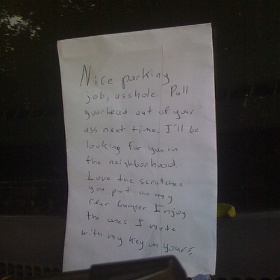 Nice parking
job, asshole. Pull
your head out of your
ass next time. I'll be
looking for you in
the neighborhood.
Love the scratches
you put on my
rear bumper. Enjoy
the ones I made
with my key on yours.